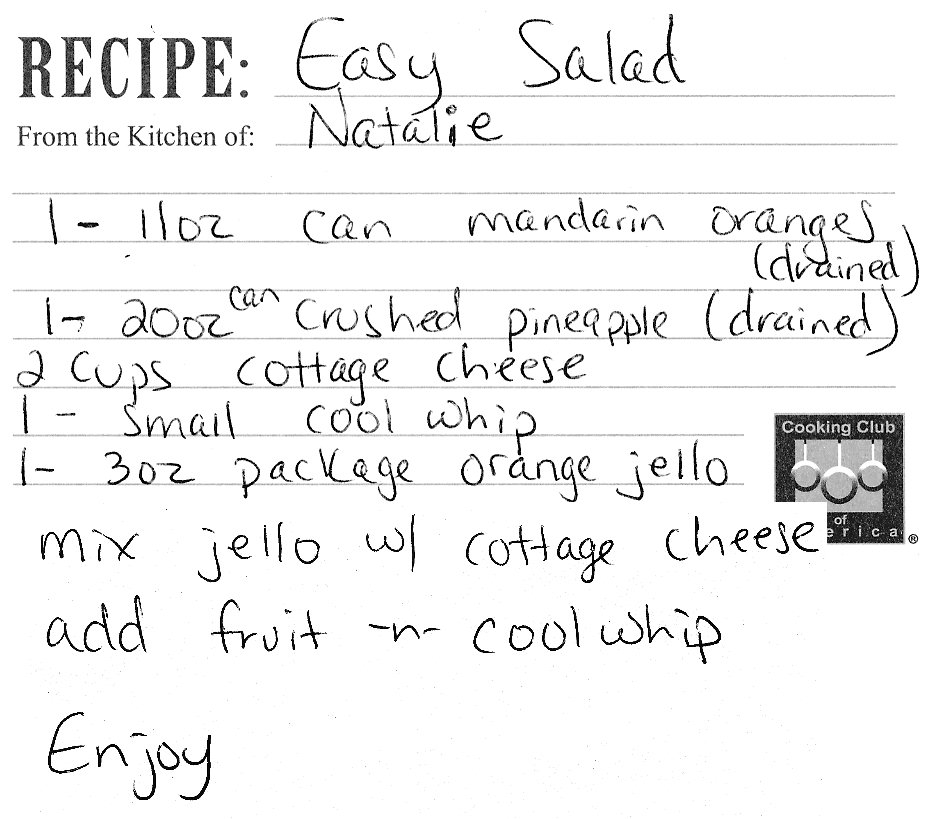 RECIPE: Easy Salad
From the Kitchen of: Natalie
1 - 11oz can mandarin oranges
(drained)
1 - 20oz can crushed pineapple (drained)
2 cups cottage cheese
1 - small cool whip
1 - 3oz package orange jello
mix jello w/ cottage cheese
add fruit -n- cool whip
Enjoy
Cooking Club
of
erica®